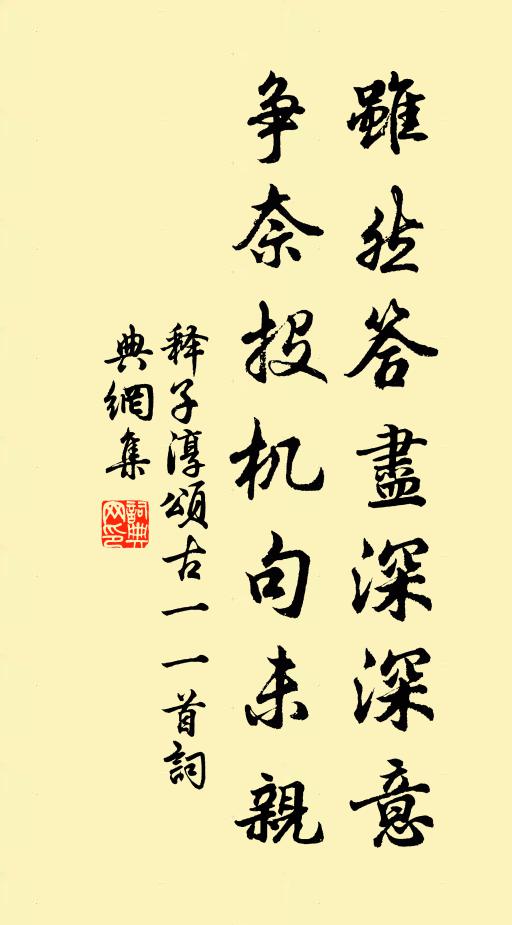 雖然答盡深深意
争奈投机句未親
释子淳頌古一一首詞
典網集
詞典
网印